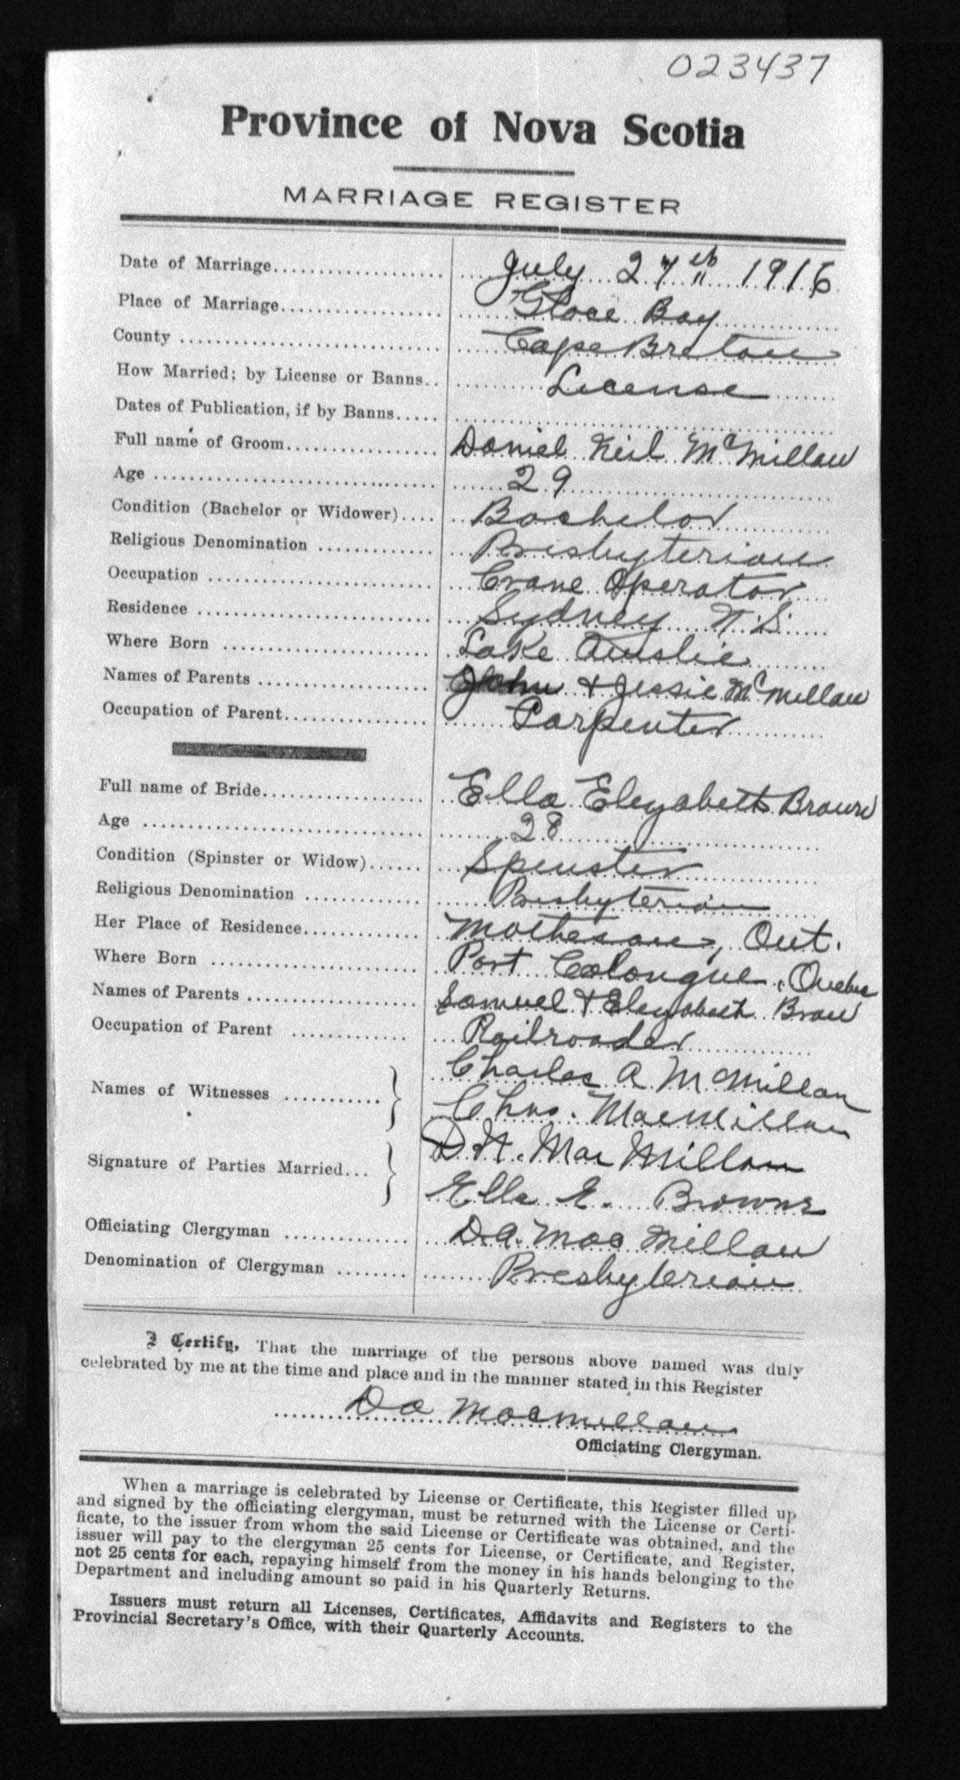 023437
Province of Nova Scotia
MARRIAGE REGISTER
Date of Marriage.................... July 27th 1916
Place of Marriage.................... Glace Bay
County .................... Cape Breton
How Married; by License or Banns.. License
Dates of Publication, if by Banns.....
Full name of Groom............... Daniel Neil McMillan
Age .................... 29
Condition (Bachelor or Widower).... Bachelor
Religious Denomination ............ Presbyterian
Occupation .................... Crane Operator
Residence .................... Sydney N S
Where Born .................... Lake Ainslie
Names of Parents .................... John & Jessie McMillan
Occupation of Parent.............. Carpenter
Full name of Bride................. Ella Elezabeth Brown
Age .................... 28
Condition (Spinster or Widow)...... Spinster
Religious Denomination ............ Presbyterian
Her Place of Residence............ Matheson, Ont.
Where Born .................... Port Colongue, Quebec
Names of Parents .................. Samuel & Elezabeth Brown
Occupation of Parent ............ Railroader
Names of Witnesses ........... } Charles A McMillan
Chas. MacMillan
Signature of Parties Married... } D.N. MacMillan
Ella E. Browne
Officiating Clergyman ............. D.A. MacMillan
Denomination of Clergyman ........ Presbyterian
I Certify, That the marriage of the persons above named was duly
celebrated by me at the time and place and in the manner stated in this Register
D A MacMillan
Officiating Clergyman.
When a marriage is celebrated by License or Certificate, this Register filled up
and signed by the officiating clergyman, must be returned with the License or Certi-
ficate, to the issuer from whom the said License or Certificate was obtained, and the
issuer will pay to the clergyman 25 cents for License, or Certificate, and Register,
not 25 cents for each, repaying himself from the money in his hands belonging to the
Department and including amount so paid in his Quarterly Returns.
Issuers must return all Licenses, Certificates, Affidavits and Registers to the
Provincial Secretary's Office, with their Quarterly Accounts.